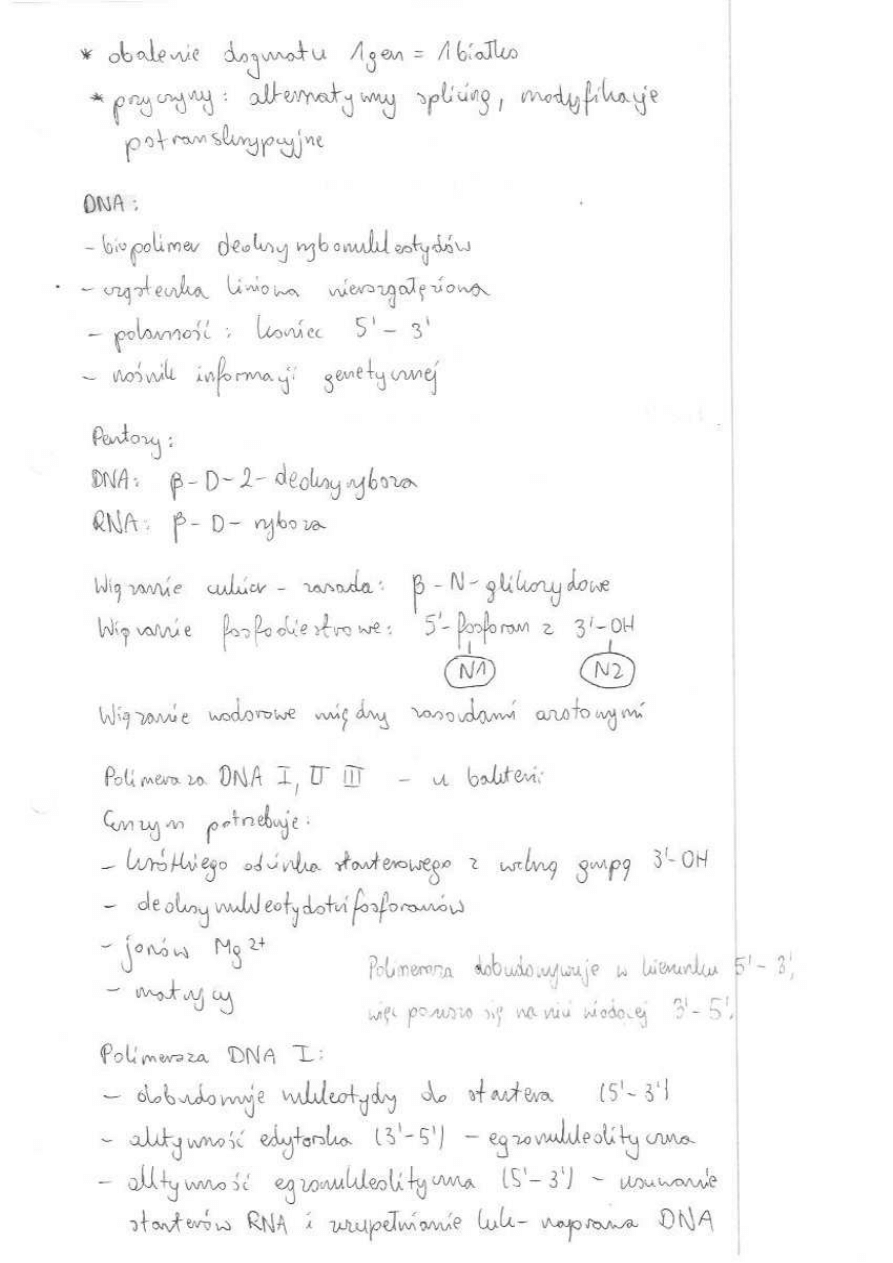 * obalenie dogmatu 1gen = 1białko
* przyczyny: alternatywny splicing, modyfikacje
potranskrypcyjne
DNA:
- biopolimer deoksyrybonukleotydów
- cząsteczka liniowa nierozgałęziona
- polarność: koniec 5' - 3'
- nośnik informacji genetycznej
Pentozy:
DNA: β-D-2-deoksyryboza
RNA: β-D-ryboza
Wiązanie cukier - zasada: β-N-glikozydowe
Wiązanie fosfodiestrowe: 5'-fosforan z 3'-OH
N1 N2
Wiązanie wodorowe między zasadami azotowymi
Polimeraza DNA I, II III - u bakterii
Enzym potrzebuje:
- krótkiego odcinka starterowego z wolną grupą 3'-OH
- deoksynukleotydotrifosforanów
- jonów Mg2+
- matrycy
Polimeraza dobudowywuje w kierunku 5'-3',
więc porusza się na nici wiodącej 3'-5'.
Polimeraza DNA I:
- dobudowuje nukleotydy do startera (5'-3')
- aktywność edytorska (3'-5') - egzonukleolityczna
- aktywność egzonukleolityczna (5'-3') - usuwanie
starterów RNA i uzupełnianie luk - naprawa DNA